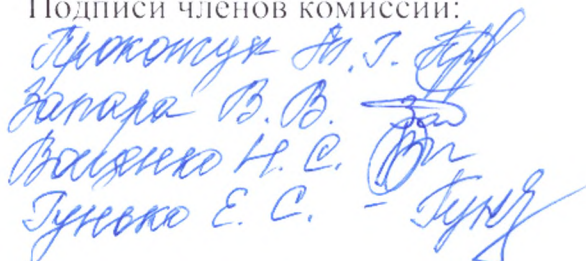 Подписи членов комиссии:
Прокощук Т. Г.
Запара В. В.
Ващенко Н. С.
Гунько Е. С. - Гунь